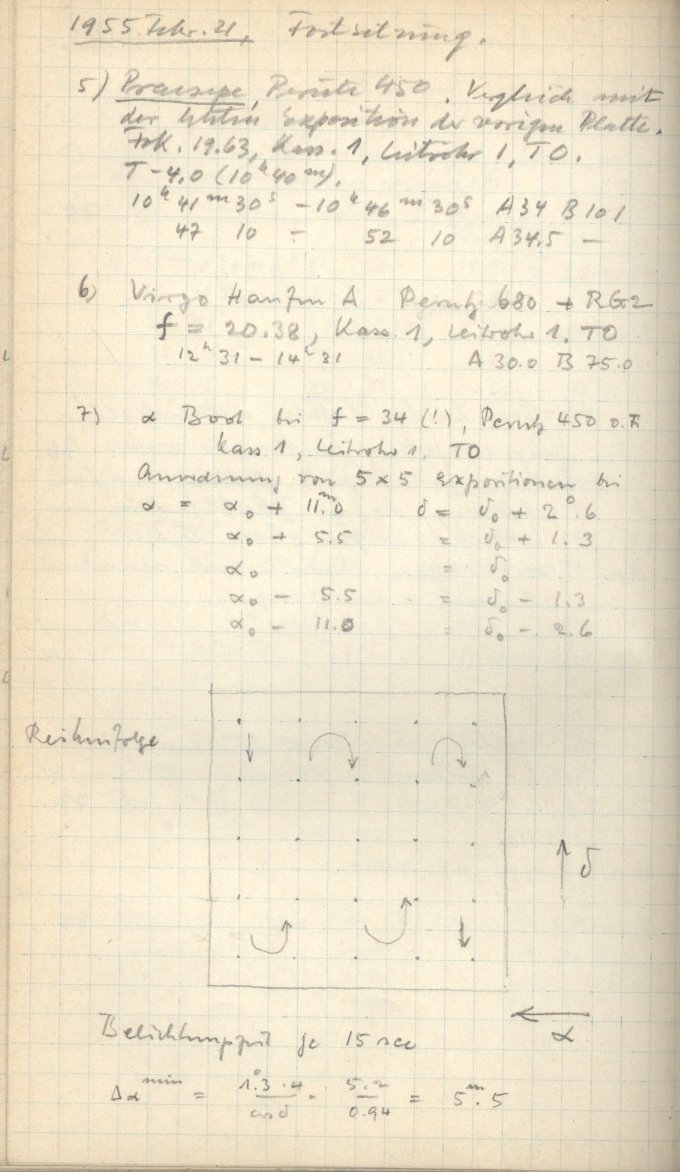 1955 Febr. 21, Fortsetzung.
5) Praesepe, Perutz 450. Vergleich mit
der letzten Exposition der vorigen Platte.
Fok. 19.63, Kass. 1, Leitrohr 1, TO.
T-4.0 (10h 40m).
10h 41m 30s - 10h 46m 30s A34 B101
47 10 - 52 10 A34.5 -
6) Virgo Haufen A Perutz 680 + RG2
f = 20.38, Kass. 1, Leitrohr 1. TO
12h 31 - 14h 31 A 30.0 B 75.0
7) α Boot bei f = 34 (!), Perutz 450 o.F.
Kass 1, Leitrohr 1. TO
Anordnung von 5 × 5 Expositionen bei
α = α₀ + 11.m0 δ = δ₀ + 2°.6
α₀ + 5.5 = δ₀ + 1.3
α₀ = δ₀
α₀ - 5.5 = δ₀ - 1.3
α₀ - 11.0 = δ₀ - 2.6
Reihenfolge
δ
α
Belichtungszeit je 15 sec
Δα min = 1°.3 · 4 / cos δ = 5.2 / 0.94 = 5m.5